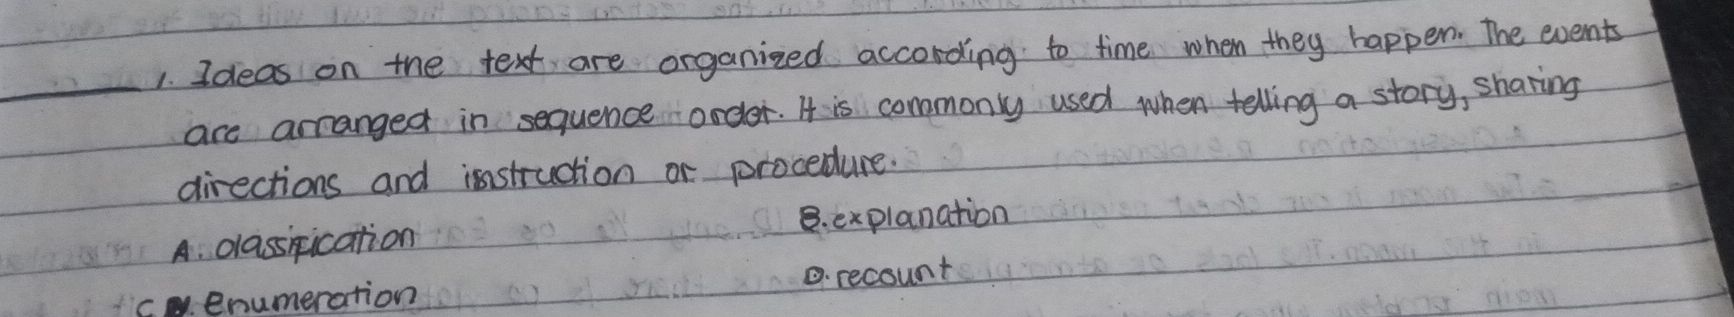 1. Ideas on the text are organized according to time when they happen. The events
are arranged in sequence order. It is commonly used when telling a story, sharing
directions and instruction or procedure.
A. classification B. explanation
C. enumeration D. recount